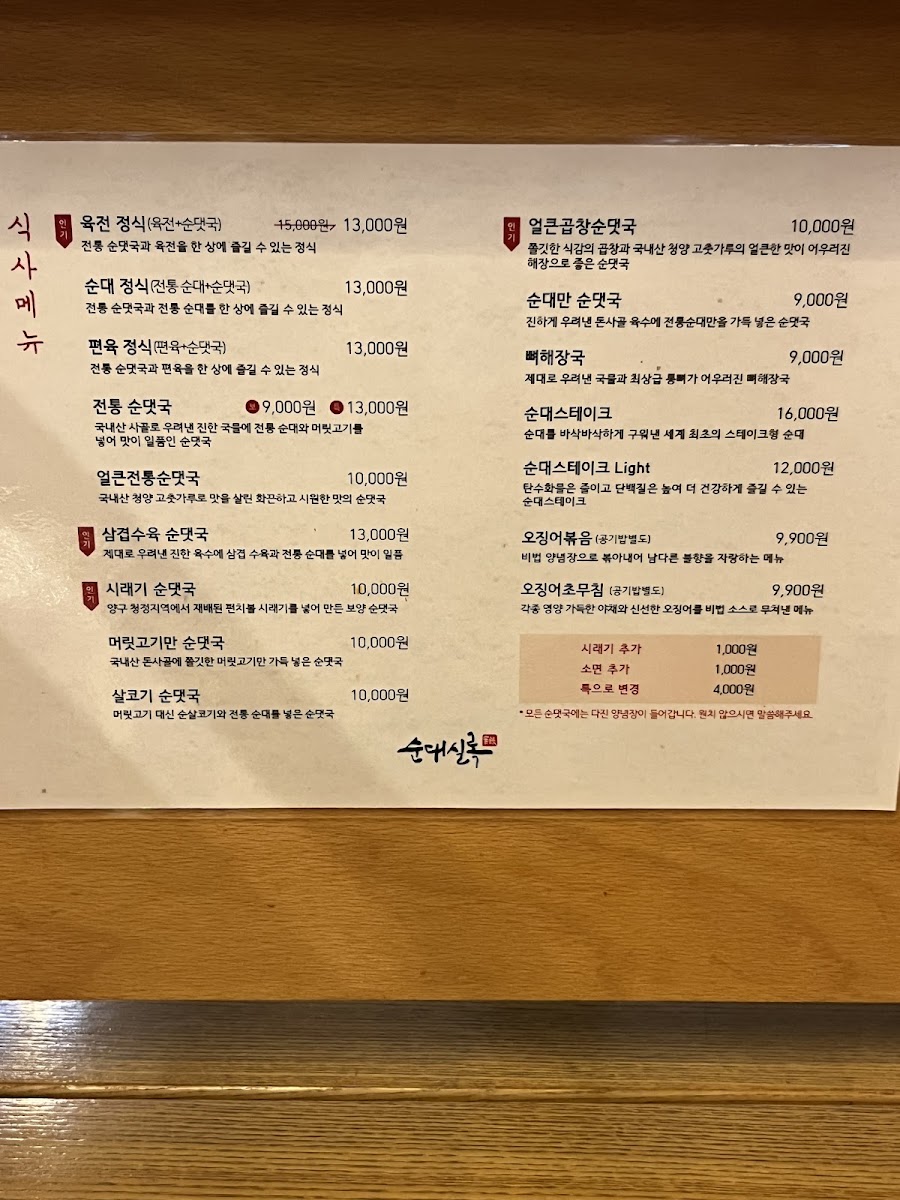 식사메뉴
인기 육전 정식(육전+순댓국) 15,000원 13,000원
전통 순댓국과 육전을 한 상에 즐길 수 있는 정식
순대 정식(전통 순대+순댓국) 13,000원
전통 순댓국과 전통 순대를 한 상에 즐길 수 있는 정식
편육 정식(편육+순댓국) 13,000원
전통 순댓국과 편육을 한 상에 즐길 수 있는 정식
전통 순댓국 보 9,000원 특 13,000원
국내산 사골로 우려낸 진한 국물에 전통 순대와 머릿고기를
넣어 맛이 일품인 순댓국
얼큰전통순댓국 10,000원
국내산 청양 고춧가루로 맛을 살린 화끈하고 시원한 맛의 순댓국
인기 삼겹수육 순댓국 13,000원
제대로 우려낸 진한 육수에 삼겹 수육과 전통 순대를 넣어 맛이 일품
인기 시래기 순댓국 10,000원
양구 청정지역에서 재배된 펀치볼 시래기를 넣어 만든 보양 순댓국
머릿고기만 순댓국 10,000원
국내산 돈사골에 쫄깃한 머릿고기만 가득 넣은 순댓국
살코기 순댓국 10,000원
머릿고기 대신 순살코기와 전통 순대를 넣은 순댓국
인기 얼큰곱창순댓국 10,000원
쫄깃한 식감의 곱창과 국내산 청양 고춧가루의 얼큰한 맛이 어우러진
해장으로 좋은 순댓국
순대만 순댓국 9,000원
진하게 우려낸 돈사골 육수에 전통순대만을 가득 넣은 순댓국
뼈해장국 9,000원
제대로 우려낸 국물과 최상급 통뼈가 어우러진 뼈해장국
순대스테이크 16,000원
순대를 바삭바삭하게 구워낸 세계 최초의 스테이크형 순대
순대스테이크 Light 12,000원
탄수화물은 줄이고 단백질은 높여 더 건강하게 즐길 수 있는
순대스테이크
오징어볶음 (공기밥별도) 9,900원
비법 양념장으로 볶아내어 남다른 불향을 자랑하는 메뉴
오징어초무침 (공기밥별도) 9,900원
각종 영양 가득한 야채와 신선한 오징어를 비법 소스로 무쳐낸 메뉴
시래기 추가 1,000원
소면 추가 1,000원
특으로 변경 4,000원
* 모든 순댓국에는 다진 양념장이 들어갑니다. 원치 않으시면 말씀해주세요.
순대실록